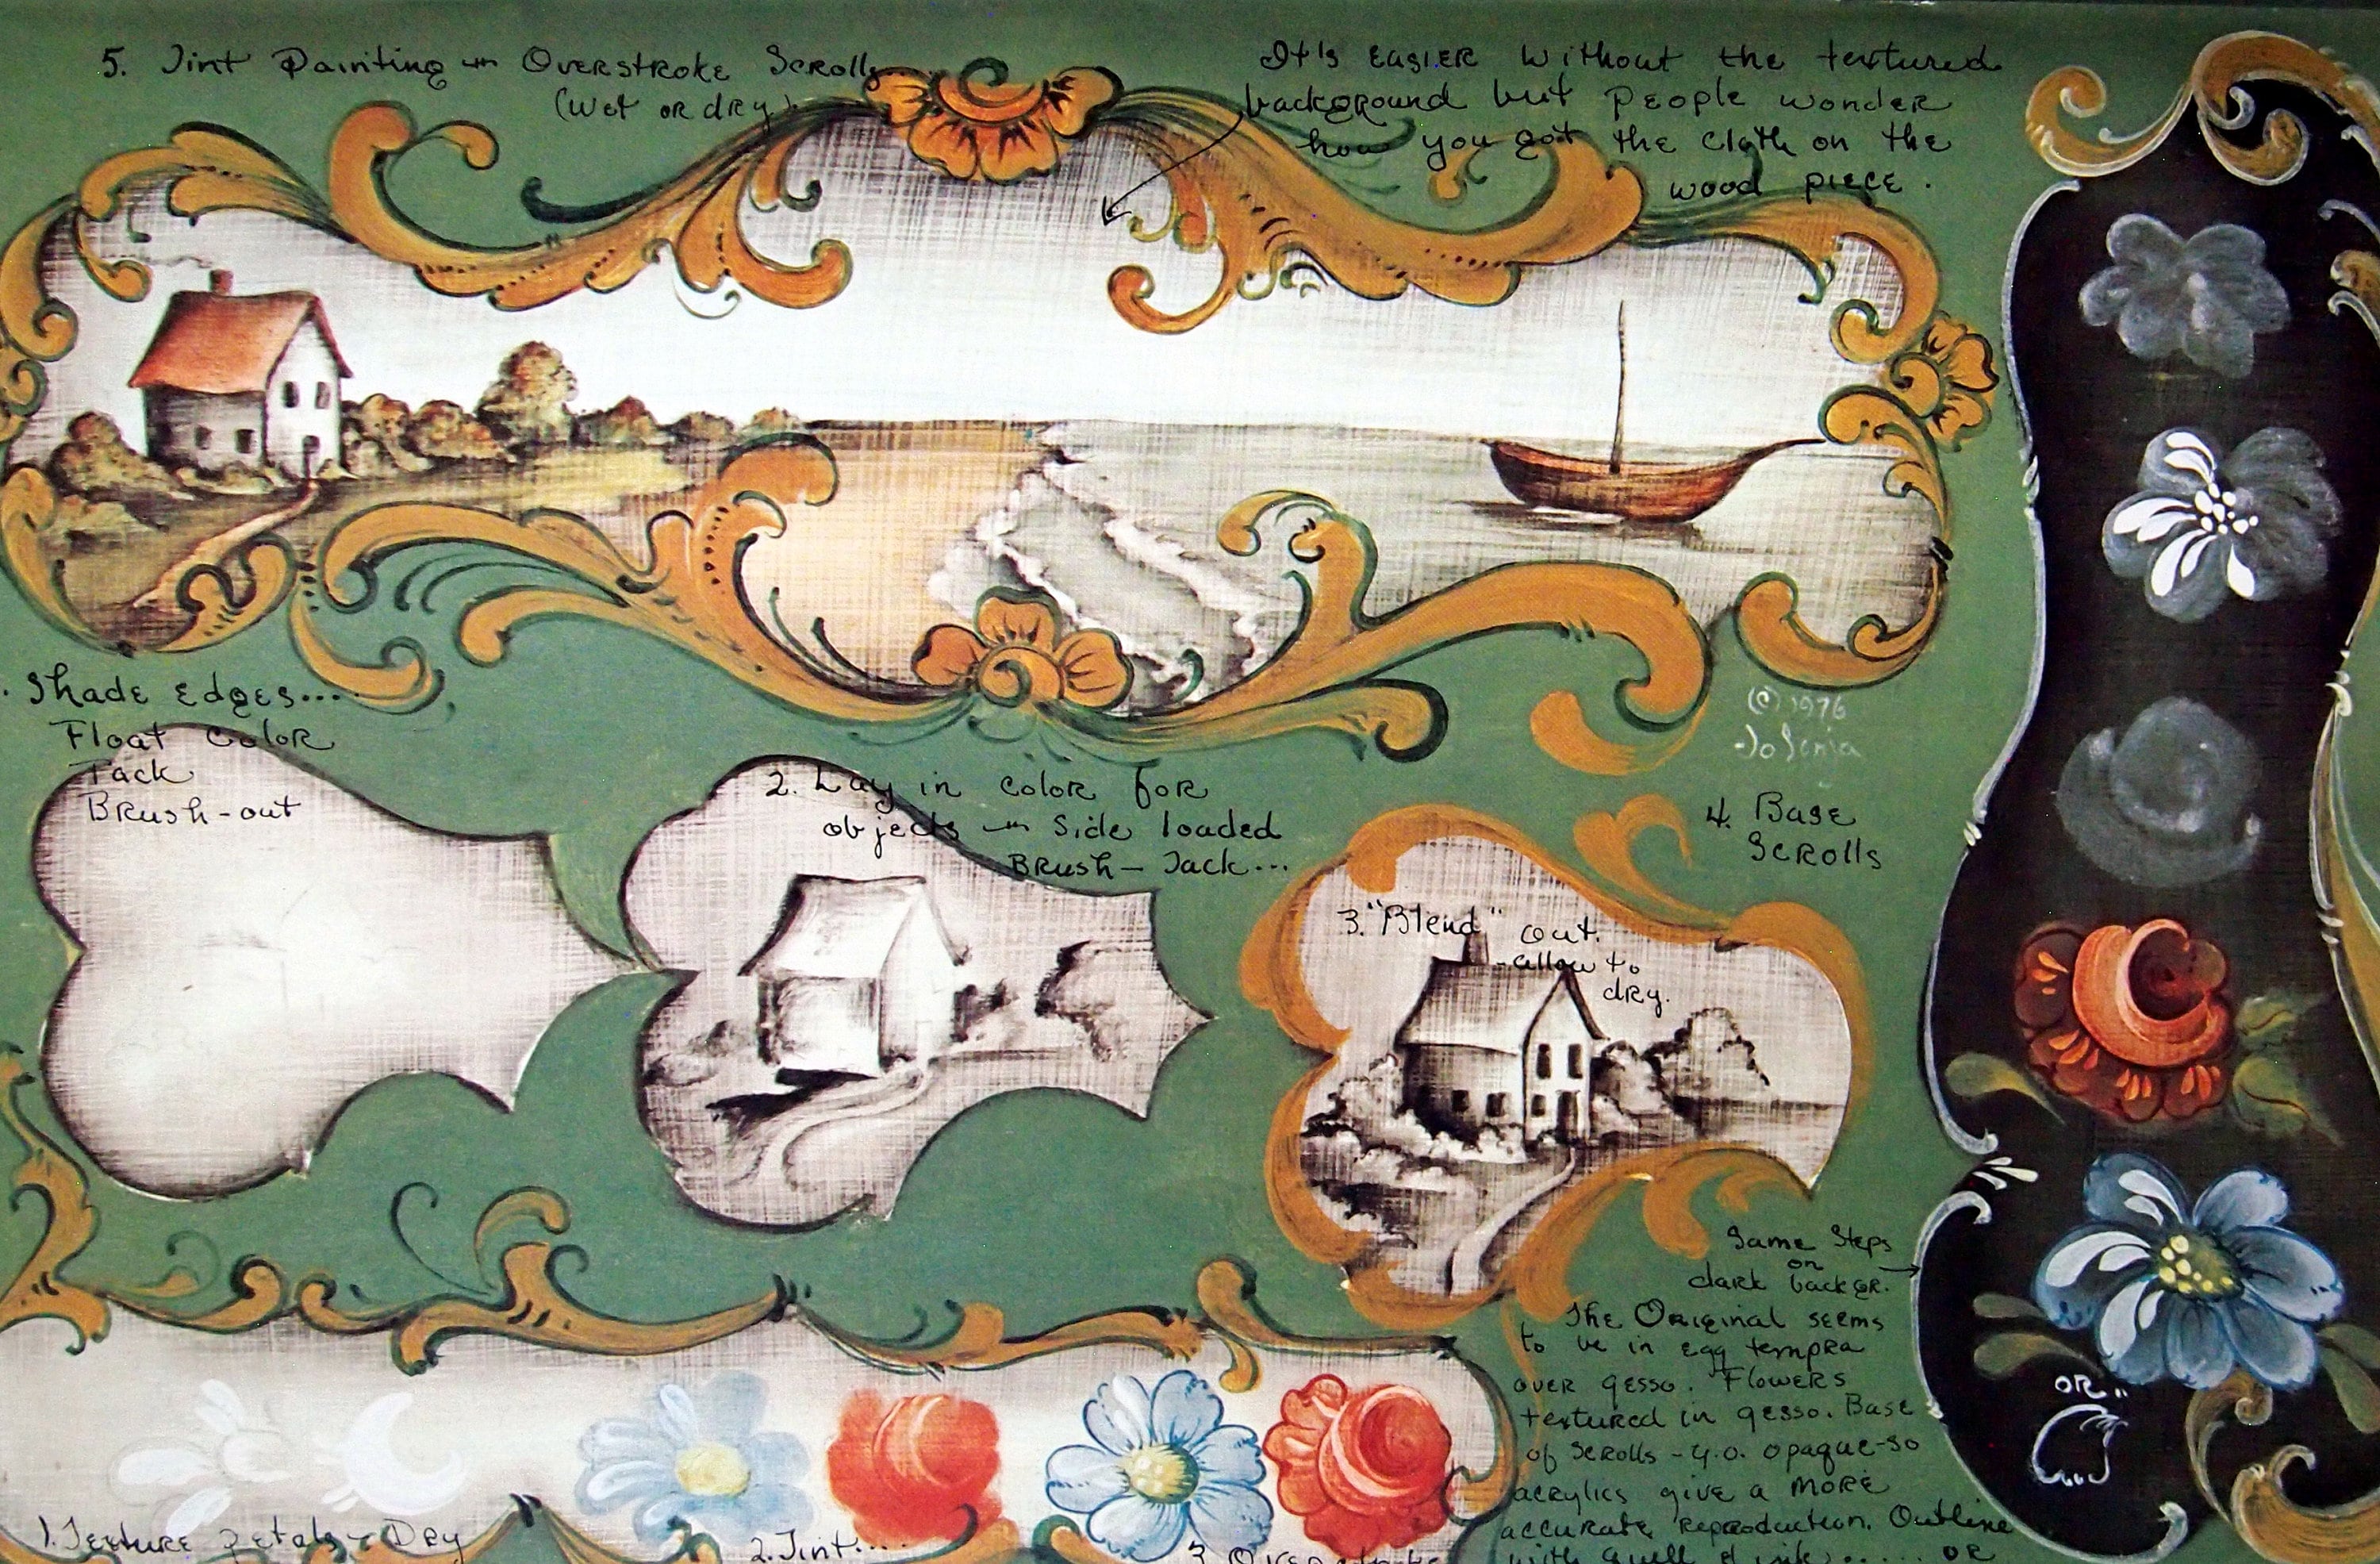 5. Tint Painting Overstroke Scrolls..
(Wet or dry)
It's easier without the textured
background but people wonder
how you got the cloth on the
wood piece.
. Shade edges....
Float color
Pack
Brush-out
2. Lay in color for
objects side loaded
Brush - Jack...
3. "Blend" out.
-allow to
dry.
(©) 1976
Jo Sonia
4. Base
Scrolls
Same Steps
on
dark backgr.
The Original seems
to be in egg tempra
over gesso. Flowers
textured in gesso. Base
of scrolls - y.o. opaque-so
acrylics give a more
accurate reproduction. Outline
with quill & ink...... or
OR..
1. Texture petals - Dry
2. Tint....
3. Overstroke